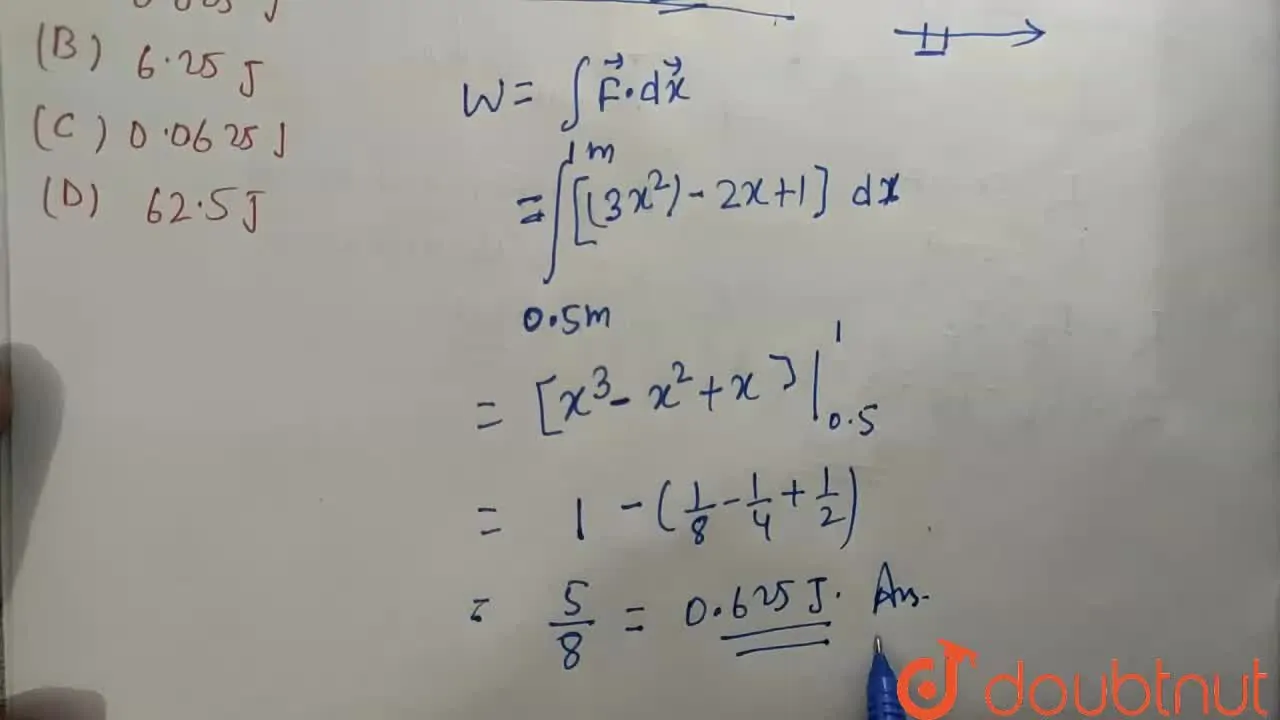 (B) 6.25 J
(C) 0.0625 J
(D) 62.5 J
W = ∫ F⃗·dx⃗
1m
= ∫ [(3x²) - 2x+1] dx
0.5m
= [x³ - x² + x]|₀.₅¹
= 1 - (1/8 - 1/4 + 1/2)
= 5/8 = 0.625 J. Ans.
doubtnut